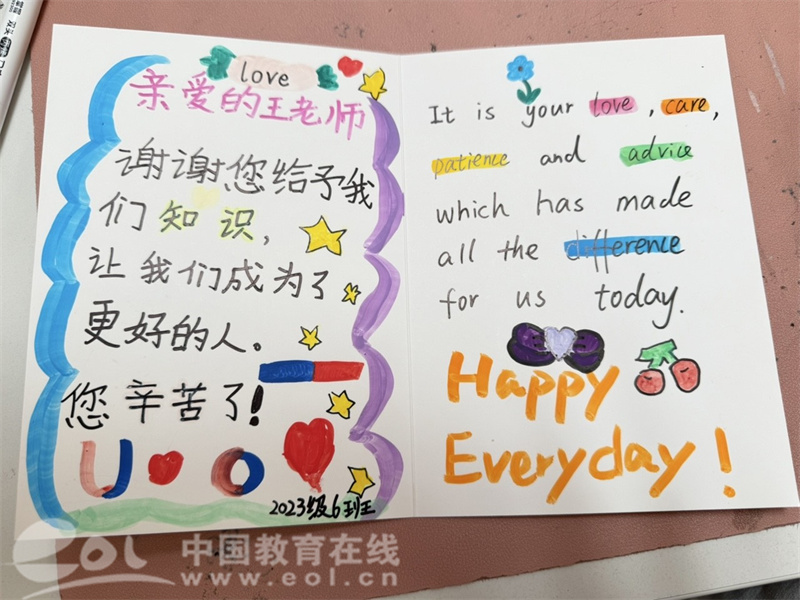 love
亲爱的王老师
谢谢您给予我
们知识，
让我们成为了
更好的人。
您辛苦了！
2023级6班
It is your love, care,
patience and advice
which has made
all the difference
for us today.
Happy
Everyday!
eol 中国教育在线
www.eol.cn